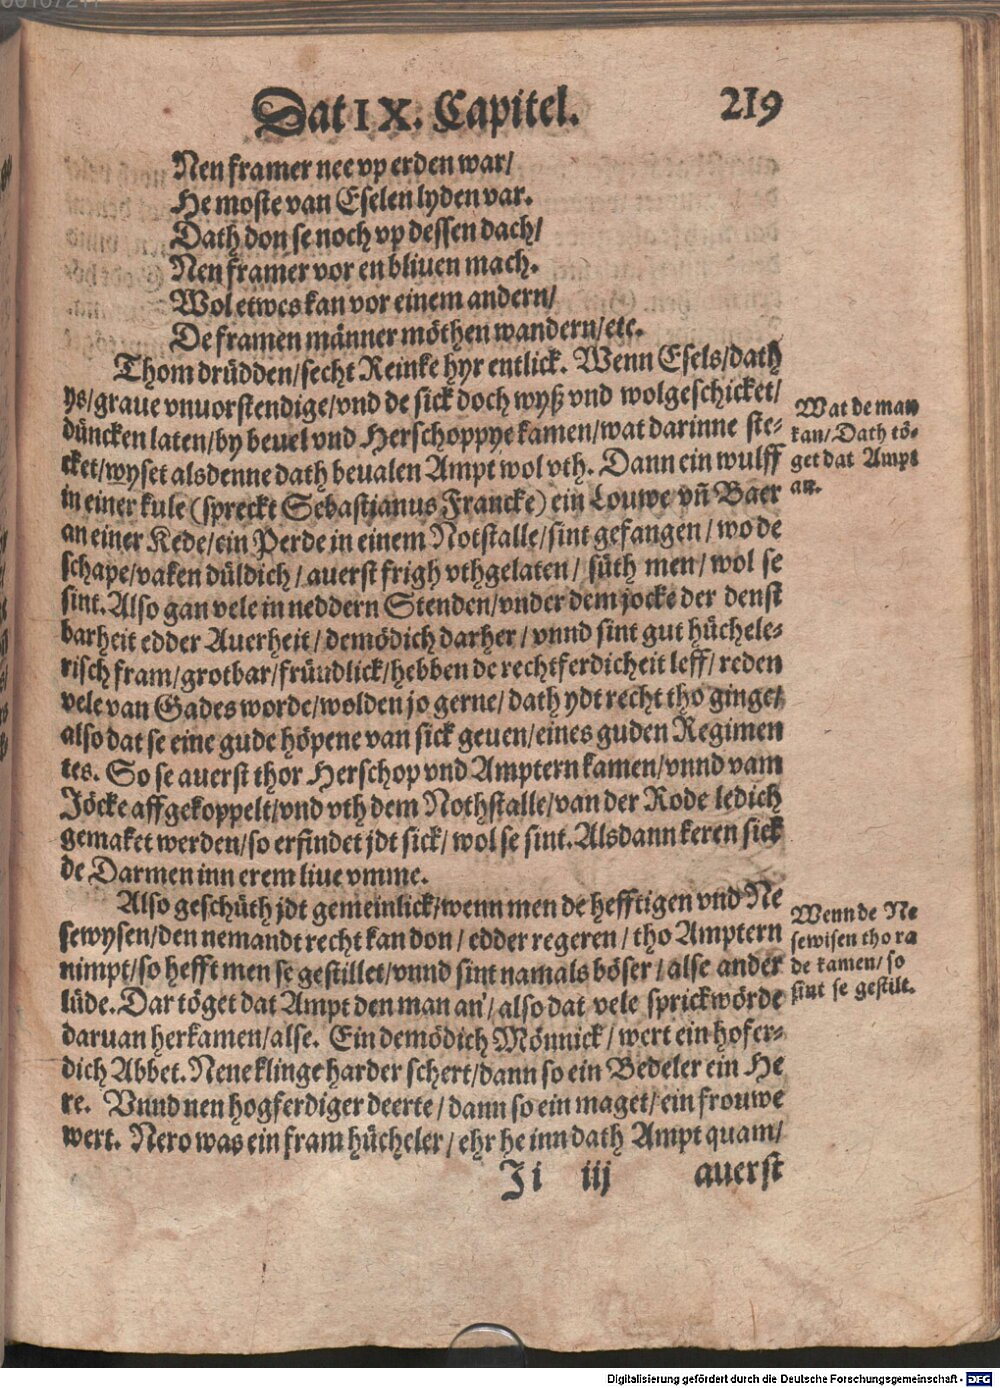 Dat IX. Capitel. 219
Nen framer nee vp erden war/
He moste van Eselen lyden var.
Dath don se noch vp dessen dach/
Nen framer vor en bliuen mach.
Wol etwes kan vor einem andern/
De framen männer möthen wandern/etc.
Thom drüdden/secht Reinke hyr entlick. Wenn Esels/dath
ys/graue vnuorstendige/vnd de sick doch wyß vnd wolgeschicket/
düncken laten/by beuel vnd Herschoppye kamen/wat darinne ste-
cket/wyset alsdenne dath beualen Ampt wol vth. Dann ein wulff
in einer kule (spreckt Sebastianus Francke) ein Louwe vñ Baer
an einer Kede/ein Perde in einem Notstalle/sint gefangen/wo de
schape/vaken düldich/auerst frigh vthgelaten/süth men/wol se
sint. Also gan vele in neddern Stenden/vnder dem jocke der denst
barheit edder Auerheit/demödich darher/vnnd sint gut hüchele-
risch fram/grotbar/fründlick/hebben de rechtferdicheit leff/reden
vele van Gades worde/wolden jo gerne/dath ydt recht tho ginge/
also dat se eine gude höpene van sick geuen/eines guden Regimen
tes. So se auerst thor Herschop vnd Amptern kamen/vnnd vam
Jöcke affgekoppelt/vnd vth dem Nothstalle/van der Rode ledich
gemaket werden/so erfindet jdt sick/wol se sint. Alsdann keren sick
de Darmen inn erem liue vmme.
Also geschüth jdt gemeinlick/wenn men de hefftigen vnd Ne
sewysen/den nemandt recht kan don/edder regeren/tho Amptern
nimpt/so hefft men se gestillet/vnnd sint namals böser/alse ander
lüde. Dar töget dat Ampt den man an/also dat vele sprickwörde
daruan herkamen/alse. Ein demödich Mönnick/wert ein hofer-
dich Abbet. Nene klinge harder schert/dann so ein Bedeler ein He
re. Vnnd nen hogferdiger deerte/dann so ein maget/ein frouwe
wert. Nero was ein fram hücheler/ehr he inn dath Ampt quam/
Ji iij auerst
Wat de man
kan/Dath tö-
get dat Ampt
an.
Wenn de Ne
sewisen tho ra
de kamen/so
sint se gestilt.
Digitalisierung gefördert durch die Deutsche Forschungsgemeinschaft - DFG